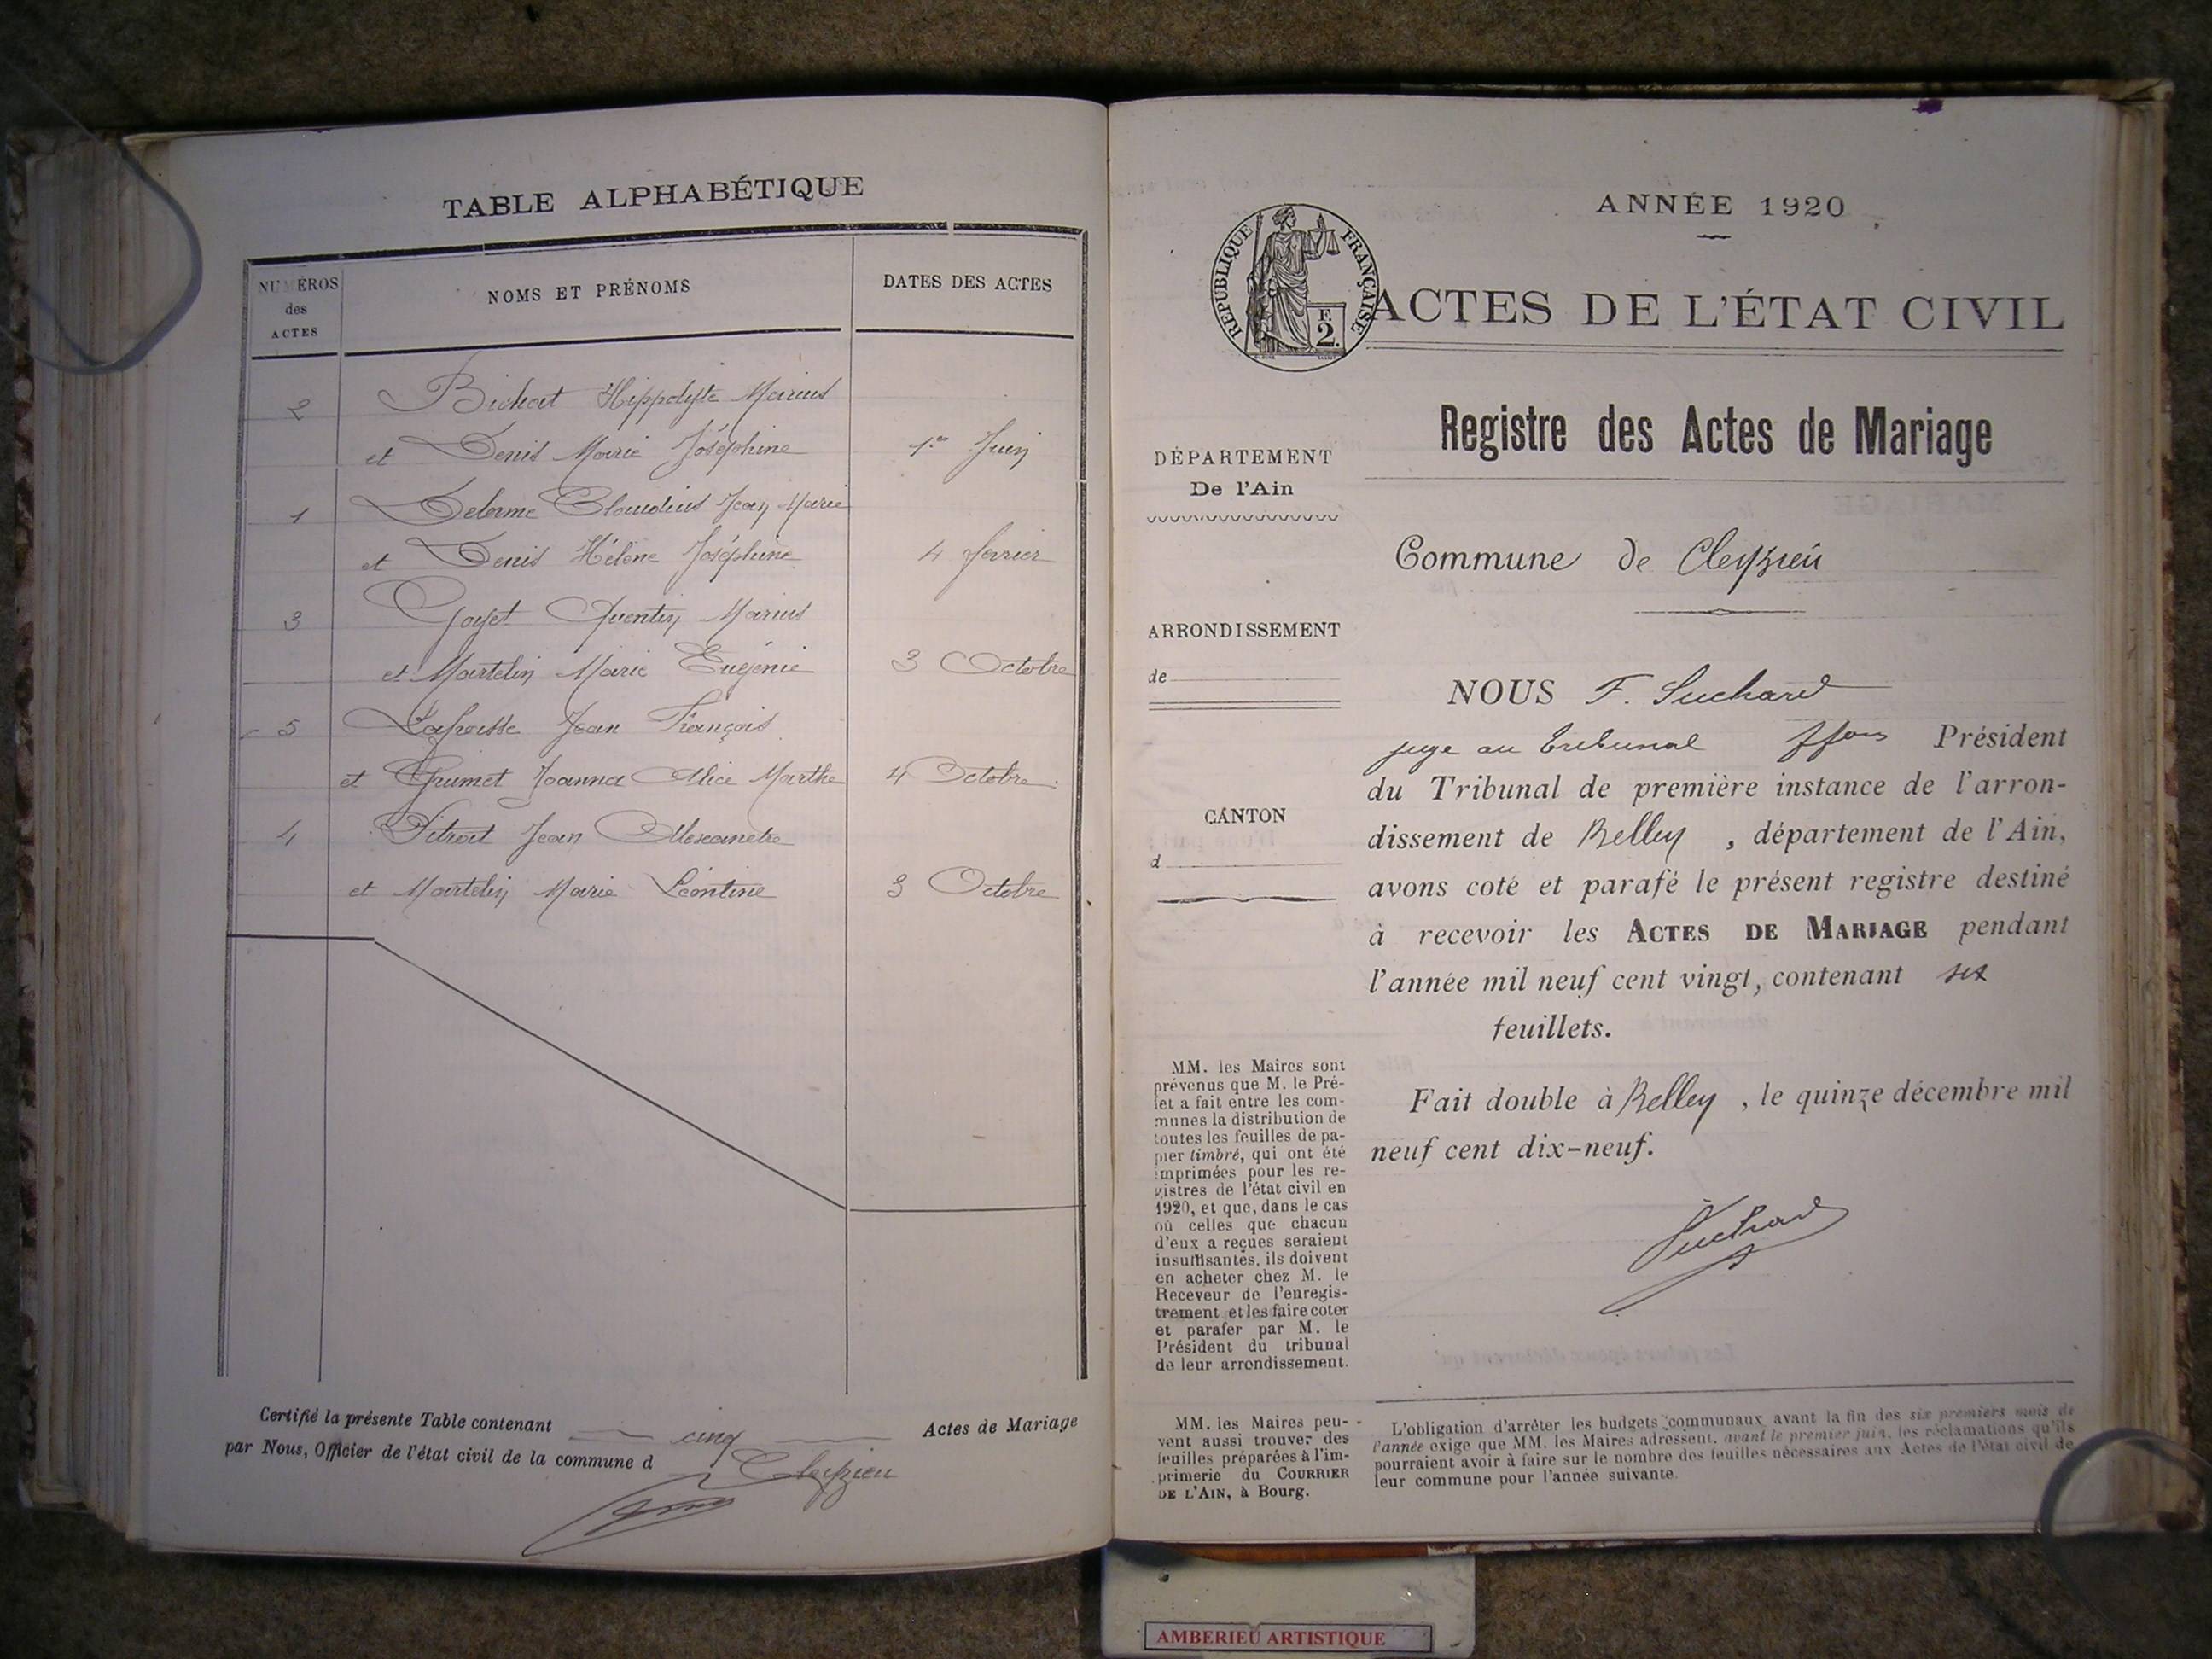 TABLE ALPHABÉTIQUE
NUMÉROS
des
ACTES
NOMS ET PRÉNOMS
DATES DES ACTES
2 Bichat Hippolyte Marius
et Denis Marie Joséphine 1er Juin
1 Delorme Claudius Jean Marie
et Denis Hélène Joséphine 4 février
3 Goyet Quentin Marius
et Martelin Marie Eugénie 3 Octobre
5 Jean François
et Grumet Joanna Alice Marthe 4 Octobre
4 Vitroit Jean Alexandre
et Martelin Marie Léontine 3 Octobre
Certifié la présente Table contenant cinq Actes de Mariage
par Nous, Officier de l'état civil de la commune d Cleyzieu
ANNÉE 1920
RÉPUBLIQUE FRANÇAISE
F.
2.
ACTES DE L'ÉTAT CIVIL
Registre des Actes de Mariage
DÉPARTEMENT
De l'Ain
Commune de Cleyzieu
ARRONDISSEMENT
de
CANTON
d
NOUS F. Suchard
juge au tribunal ffons Président
du Tribunal de première instance de l'arron-
dissement de Belley , département de l'Ain,
avons coté et parafé le présent registre destiné
à recevoir les ACTES DE MARIAGE pendant
l'année mil neuf cent vingt, contenant six
feuillets.
Fait double à Belley , le quinze décembre mil
neuf cent dix-neuf.
Suchard
MM. les Maires sont
prévenus que M. le Pré-
fet a fait entre les com-
munes la distribution de
toutes les feuilles de pa-
pier timbré, qui ont été
imprimées pour les re-
gistres de l'état civil en
1920, et que, dans le cas
où celles que chacun
d'eux a reçues seraient
insuffisantes, ils doivent
en acheter chez M. le
Receveur de l'enregis-
trement et les faire coter
et parafer par M. le
Président du tribunal
de leur arrondissement.
MM. les Maires peu-
vent aussi trouver des
feuilles préparées à l'im-
primerie du COURRIER
DE L'AIN, à Bourg.
L'obligation d'arrêter les budgets communaux avant la fin des six premiers mois de
l'année exige que MM. les Maires adressent, avant le premier juin, les réclamations qu'ils
pourraient avoir à faire sur le nombre des feuilles nécessaires aux Actes de l'état civil de
leur commune pour l'année suivante.
AMBERIEU ARTISTIQUE